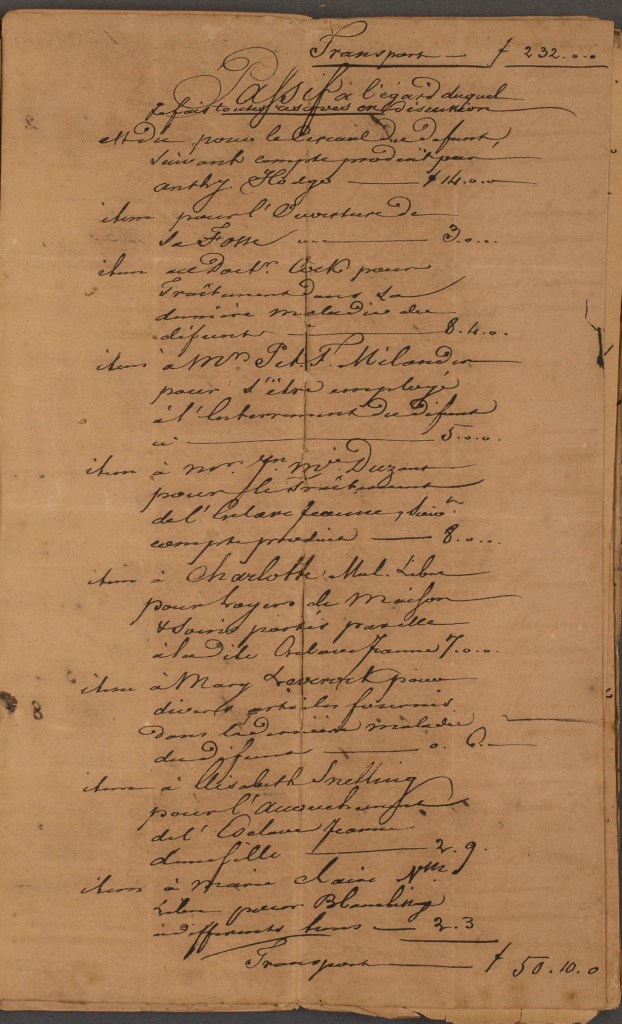 Transport — ƒ 232.. o. o
Passif à l'égard duquel
je fais toutes reserves en discution
est du pour le Cercueil du defunt,
suivant compte produit par
Anthy. Hodge — ƒ 14. o. o
item pour l'Ouverture de
la Fosse — 3. o...
item au Doctr. Cock pour
Traitement dans la
derniere maladie du
défunt — 8. 4. o.
item à Mrs P et F. Milander
pour s'être employé
à l'Enterrement du defunt
ci — 5. o. o
item à Mr. Jn. Mie. Duzant
pour le Traitement
de l'Esclave Jeanne, Suivt.
compte produit — 8. o...
item à Charlotte Mul. Libre
pour Loyers de Maison
& Soins portés par elle
à la dite Esclave Jeanne 7. o. o
item à Mary Leverock pour
divers articles fournis
dans la derniere maladie
du difunt — o. 6. —
item à Elisabeth Snelling
pour l'accouchement
de l' Esclave Jeanne
d'une fille — 2. 9.
item à Marie Claire
Libre pour Blanchissg
à differents tems — 2. 3
Transport — ƒ 50. 10. o